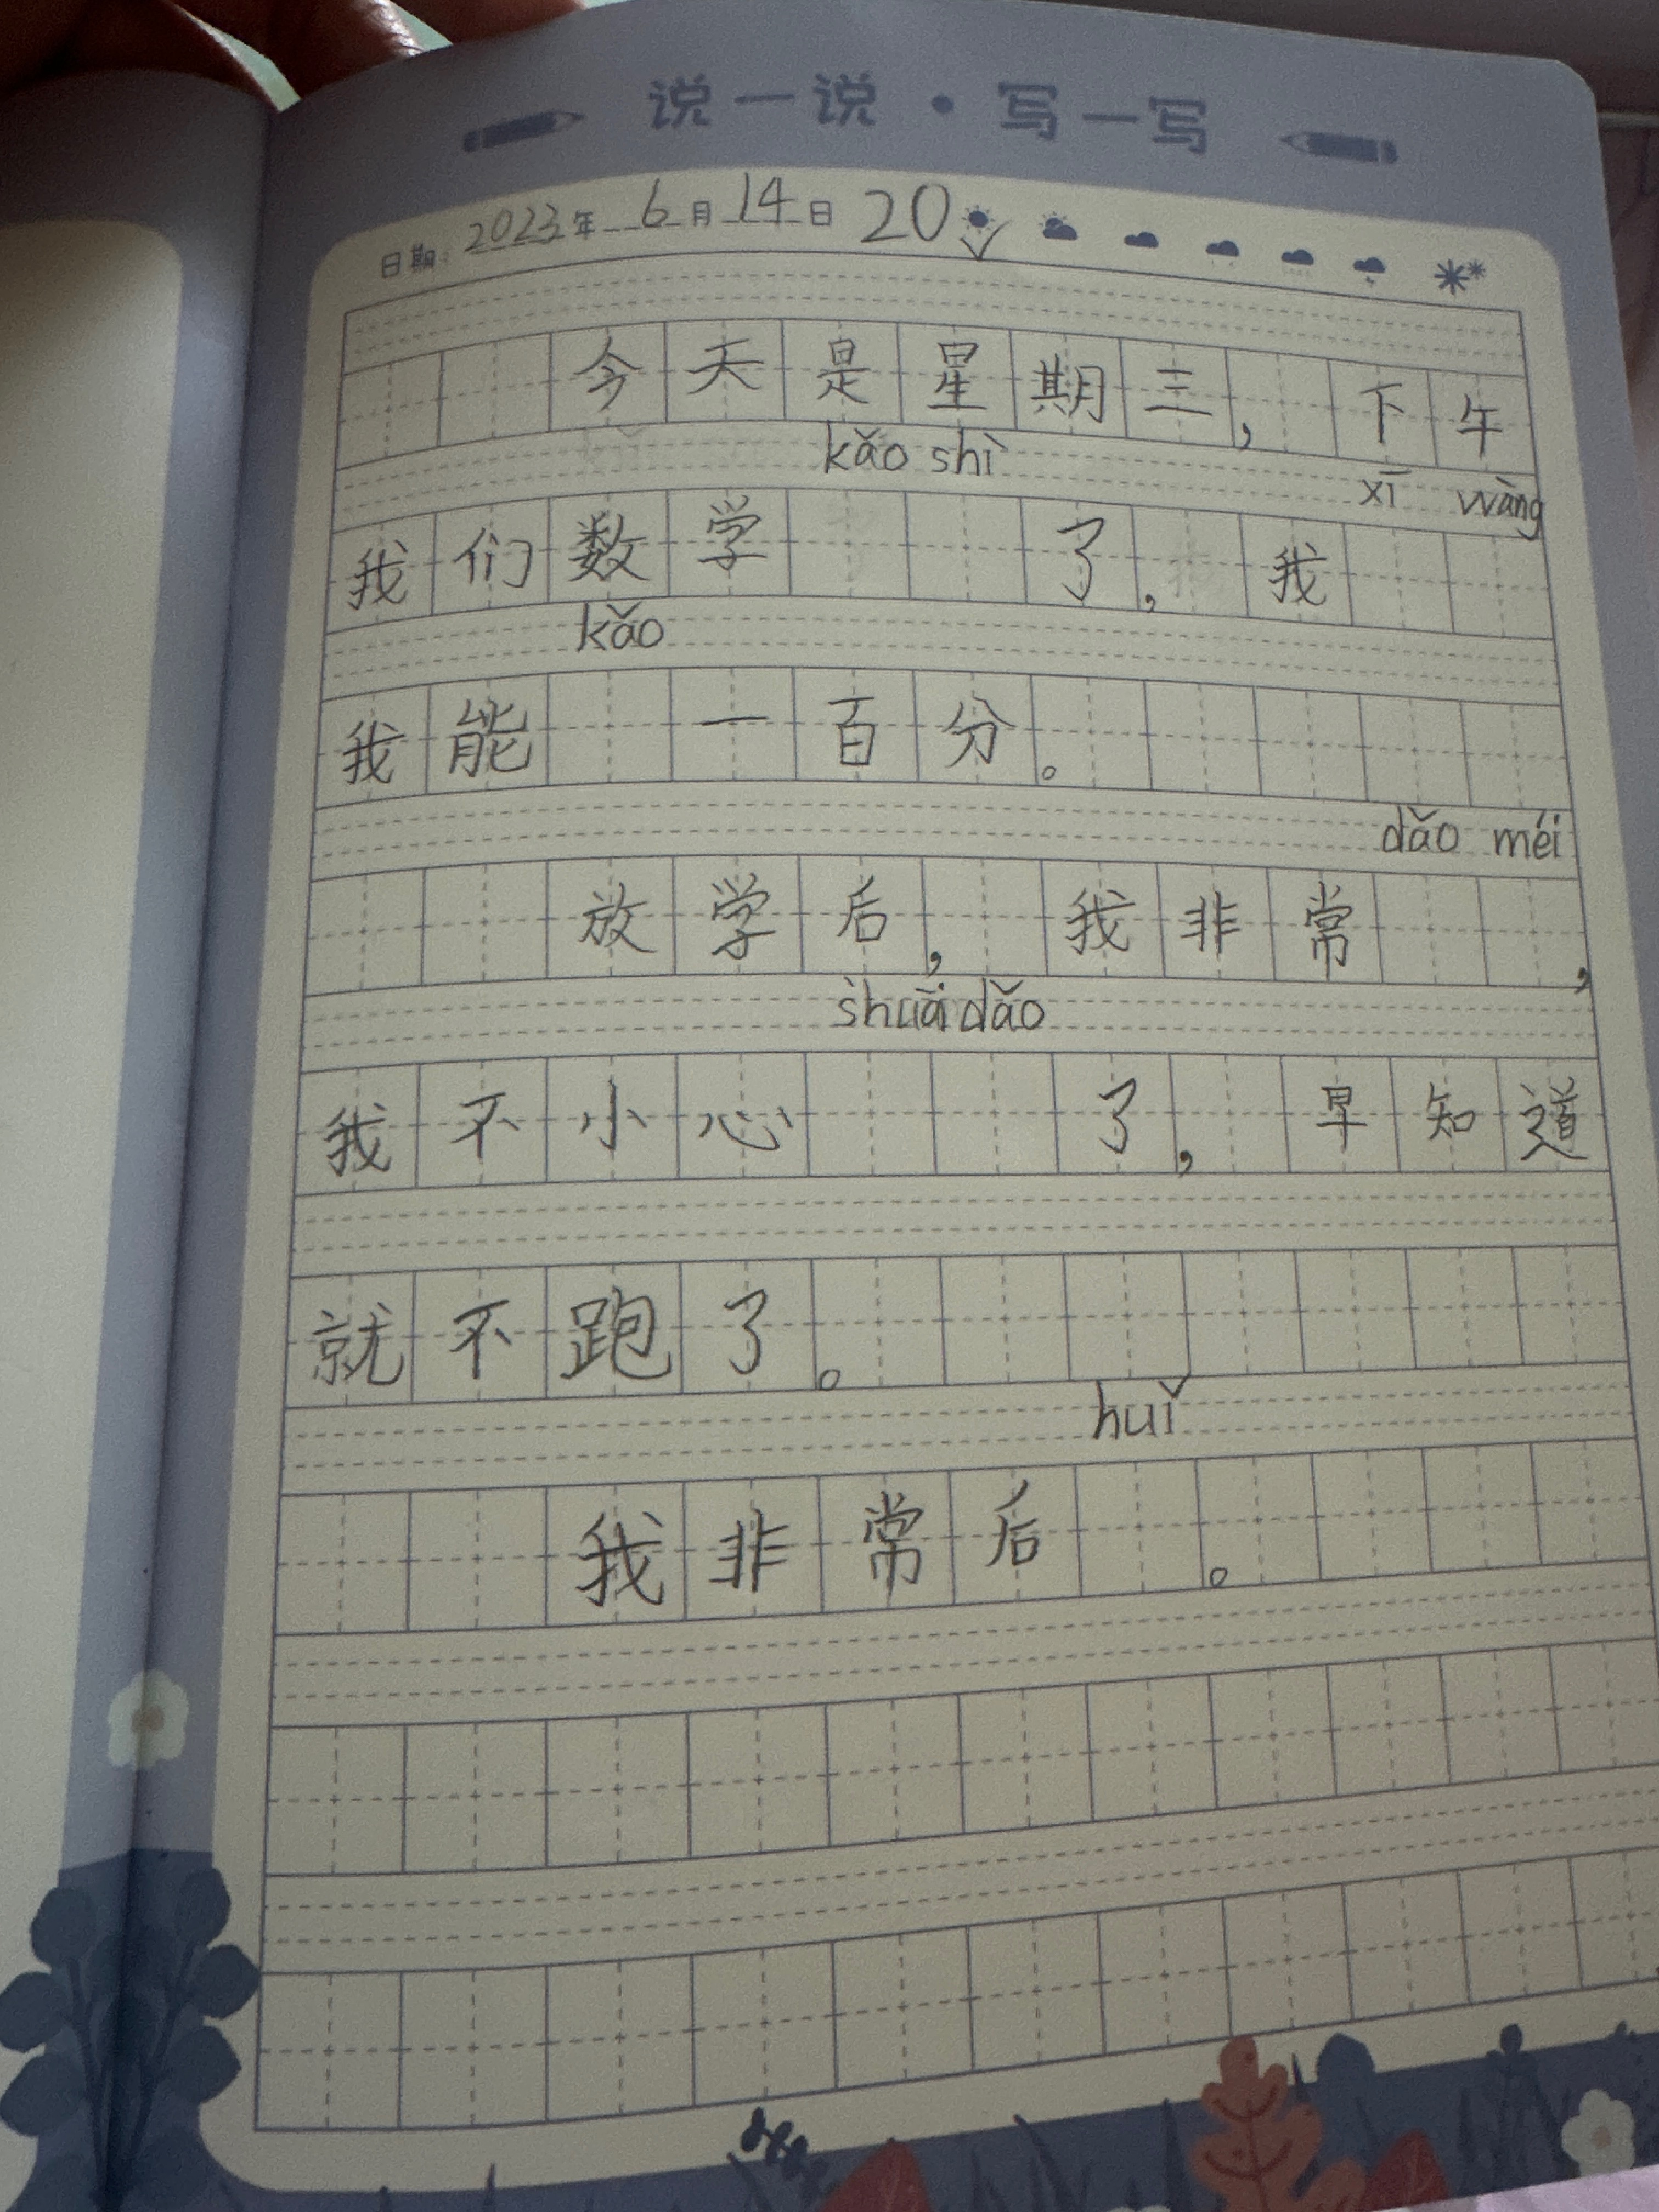 说一说·写一写
日期：2023年6月14日 20
今天是星期三，下午
kǎo shì xī wàng
我们数学 了，我
kǎo
我能 一百分。
dǎo méi
放学后，我非常 ，
shuāi dǎo
我不小心 了，早知道
就不跑了。
huǐ
我非常后 。